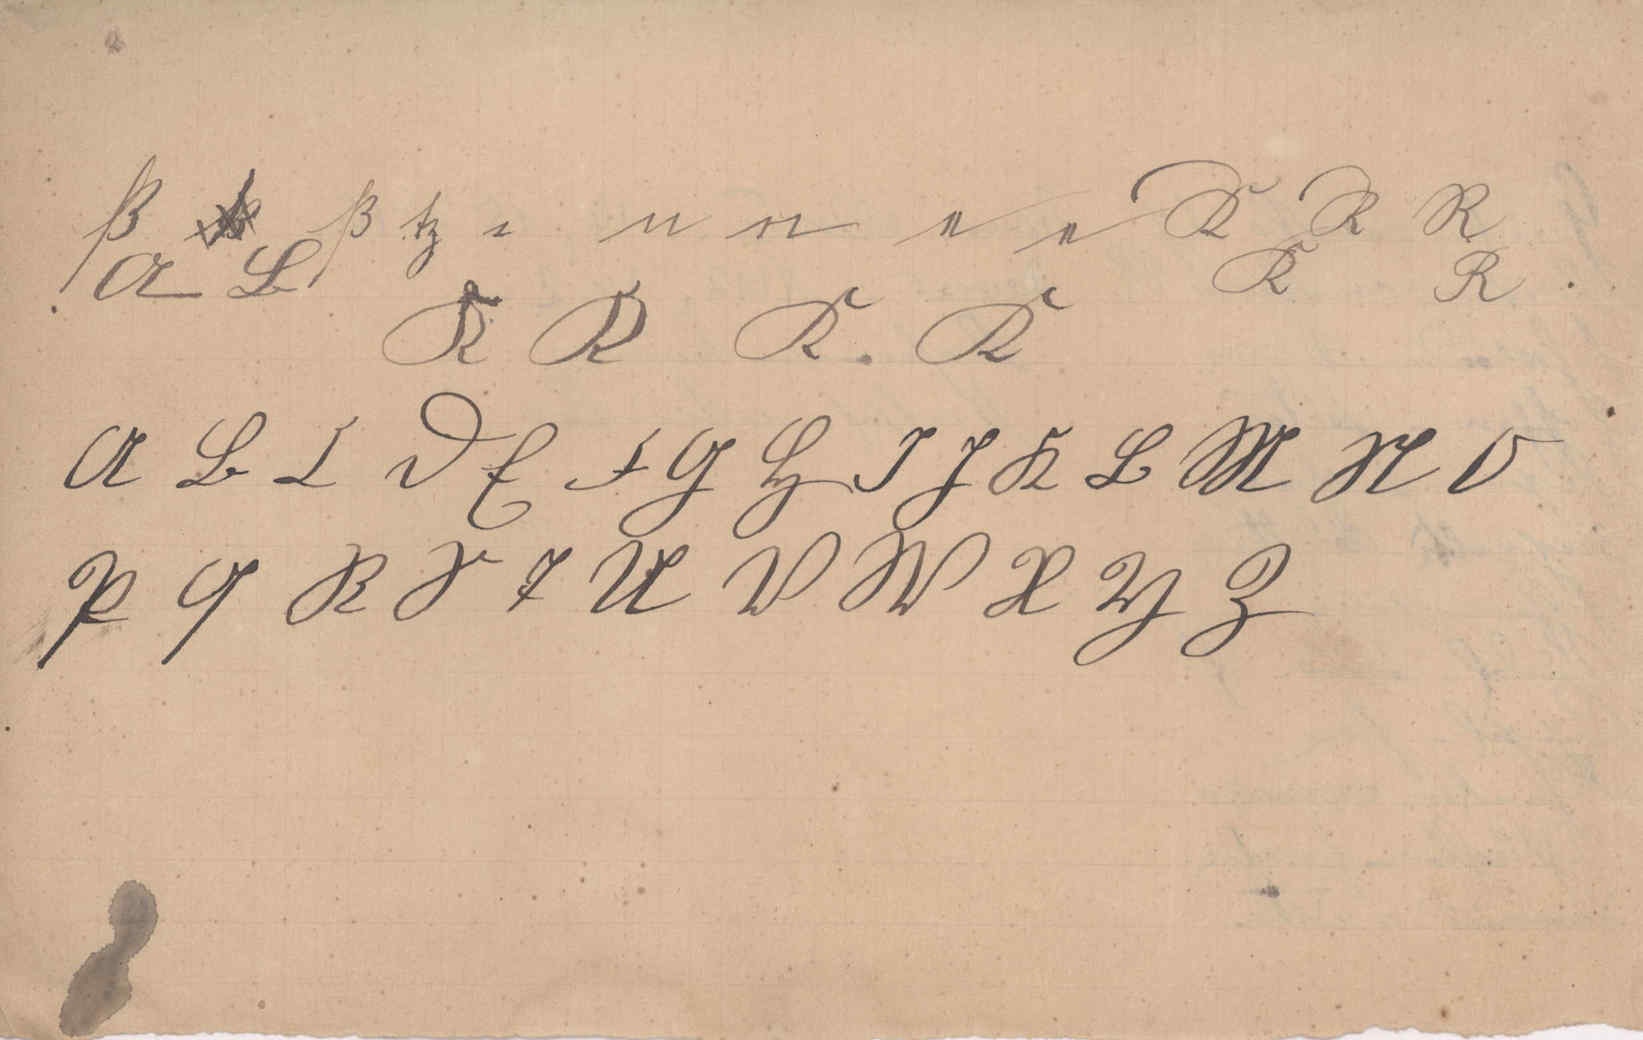 ß ß tz n n e e K R R
A L K R
K R K K
A B C D E F G H I J K L M N O
P Q R S T U V W X Y Z